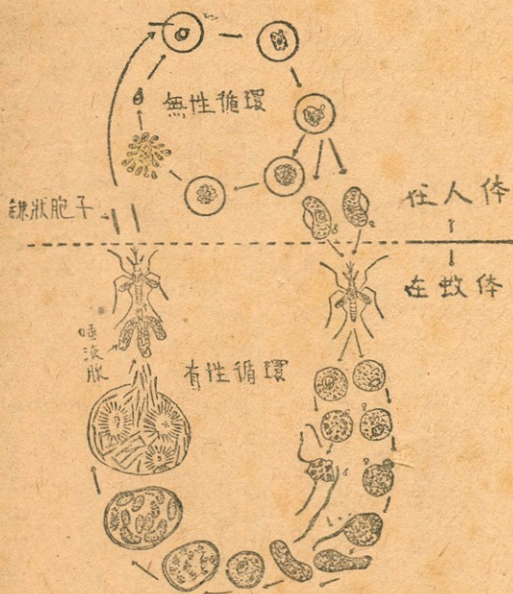 無性循環
鐮狀胞子
在人体
在蚊体
唾液腺
有性循環